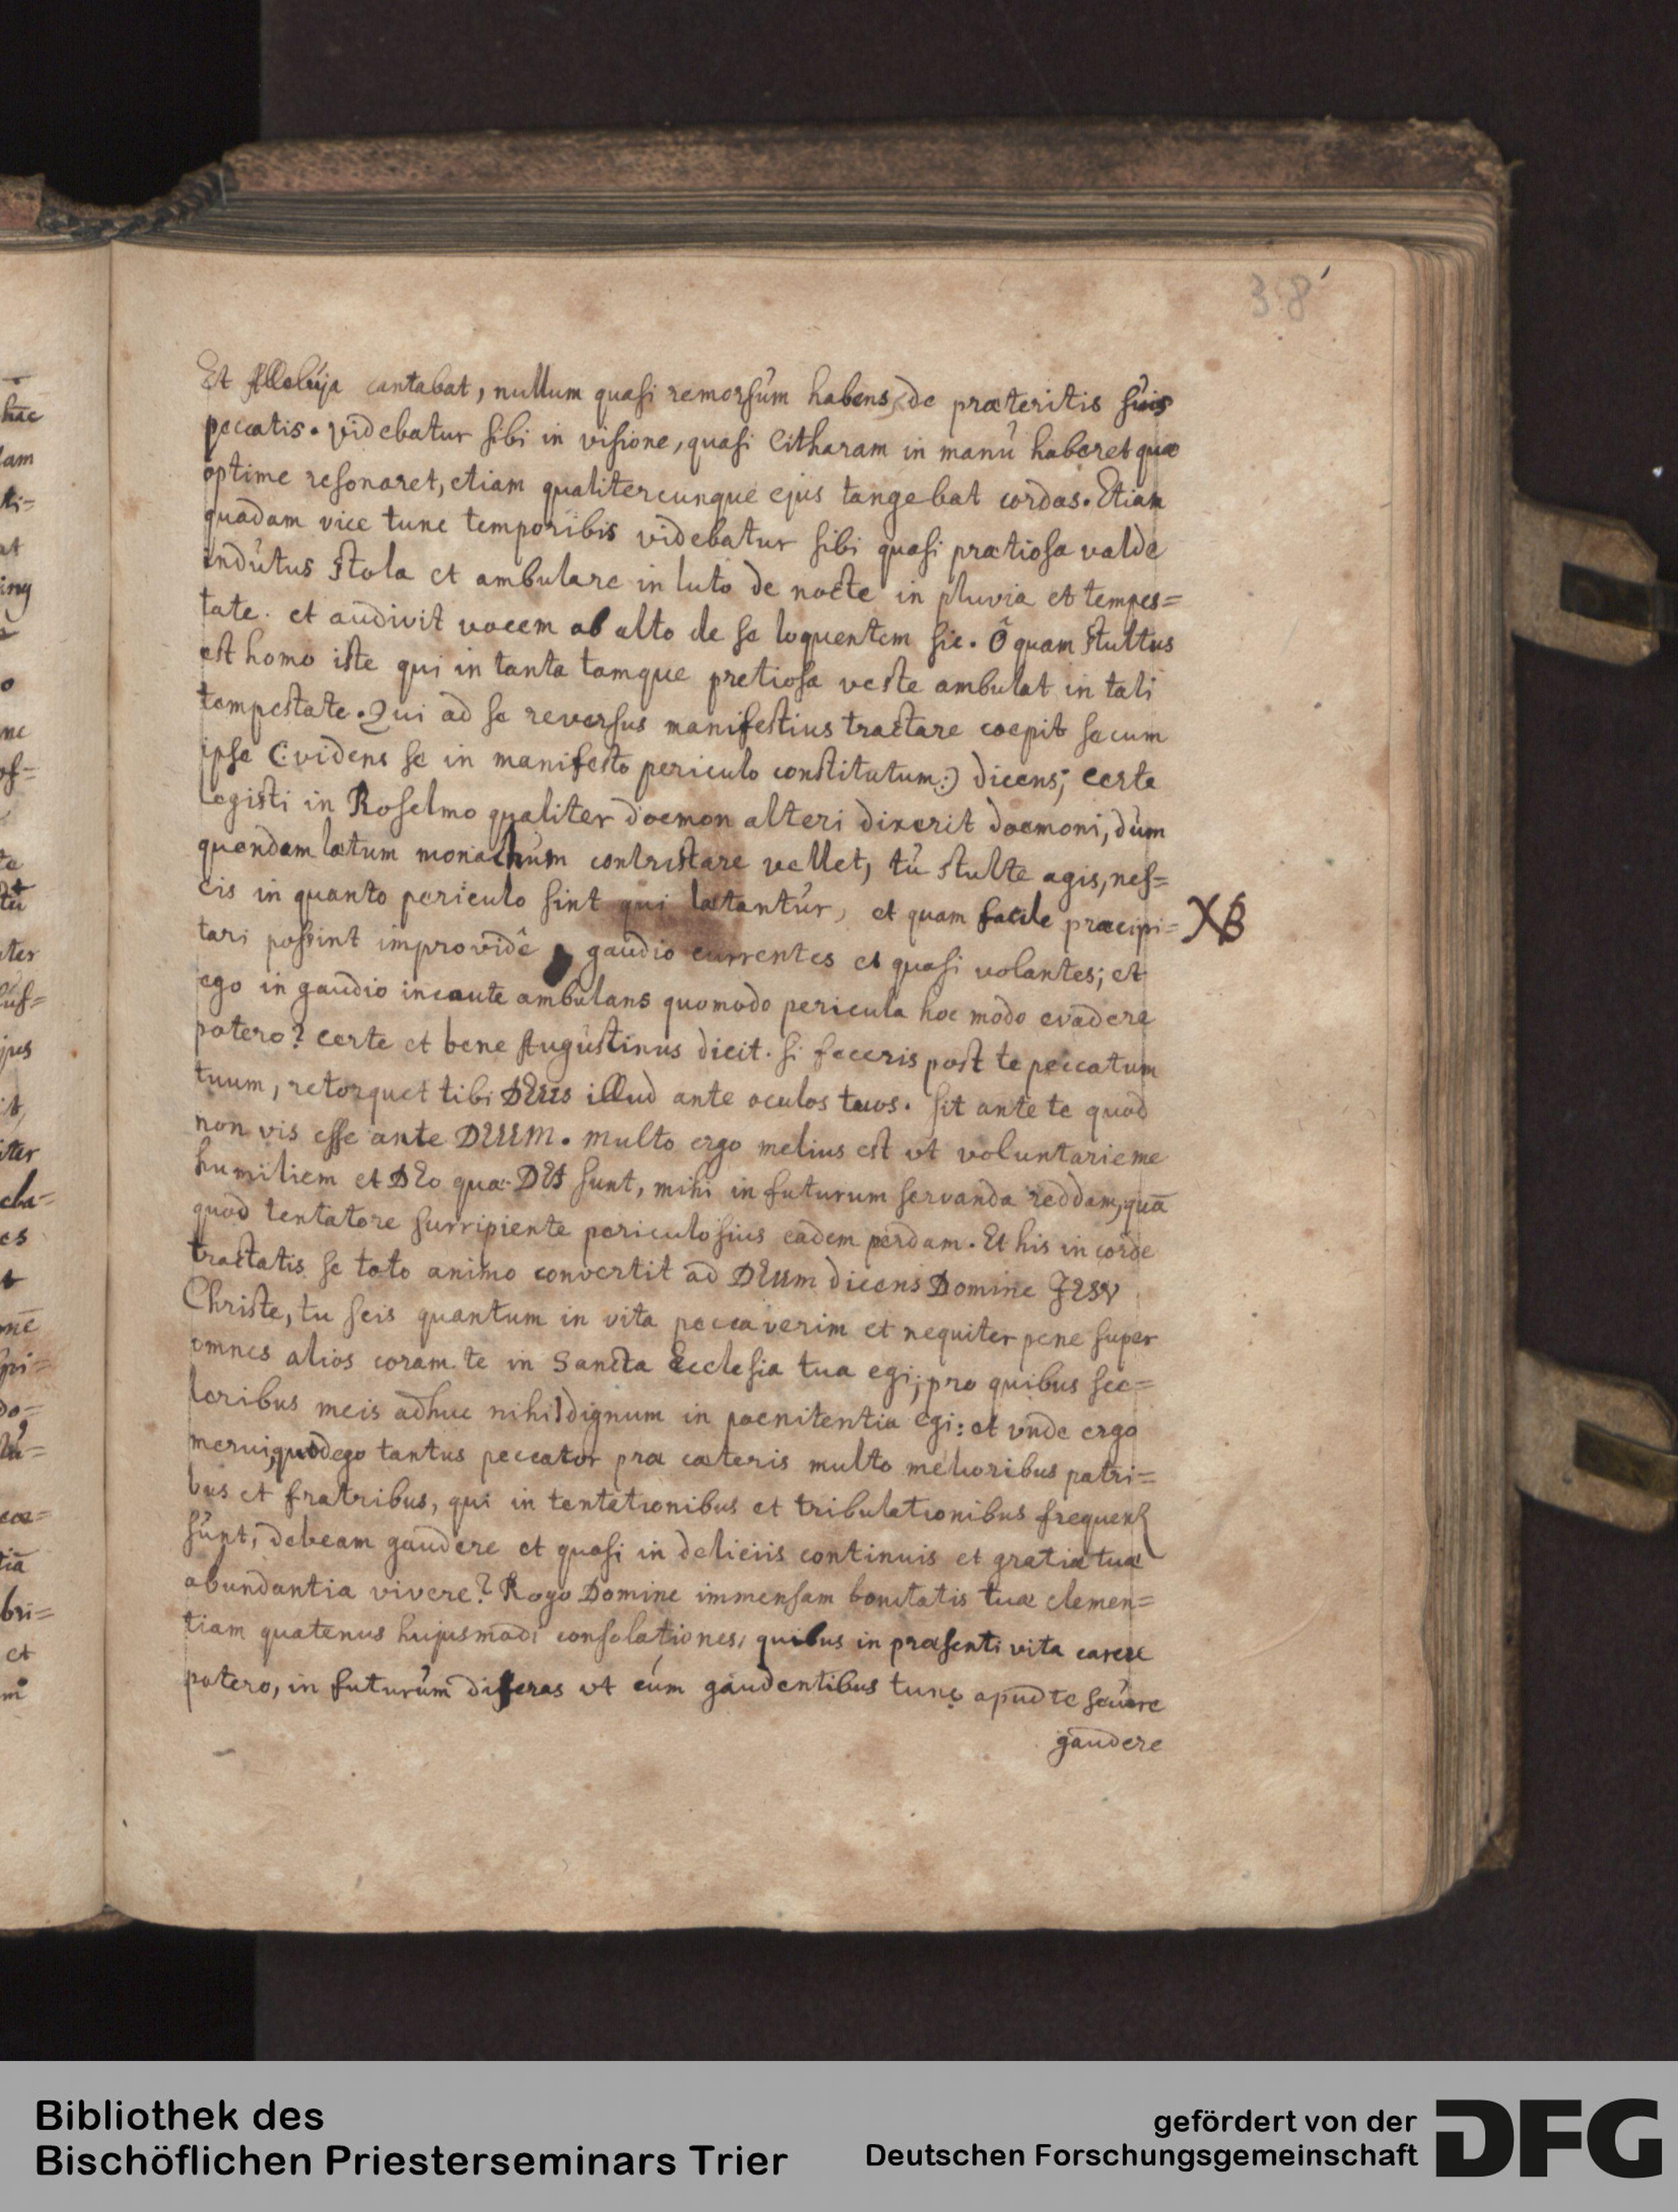 38'
Et Alleluja cantabat, nullum quasi remorsum habens, de præteritis suis
peccatis. videbatur sibi in visione, quasi Citharam in manu haberet quæ
optime resonaret, etiam qualitercunque ejus tangebat cordas. Etiam
quadam vice tunc temporibis videbatur sibi quasi prætiosa valde
indutus stola et ambulare in luto de nocte in pluvia et tempes=
tate. et audivit vocem ab alto de se loquentem sic. Ô quam stultus
est homo iste qui in tanta tamque pretiosa veste ambulat in tali
tempestate. Qui ad se reversus manifestius tractare coepit secum
ipse (: videns se in manifesto periculo constitutum:) dicens; certe
legisti in Roselmo qualiter doemon alteri dixerit doemoni, dum
quendam lætum monachum contristare vellet, tu stulte agis, nes=
cis in quanto periculo sint qui lætantur, et quam facile præcipi= XB
tari possint improvidê gaudio currentes et quasi volantes; et
ego in gaudio incaute ambulans quomodo pericula hoc modo evadere
potero? certe et bene Augustinus dicit. si feceris post te peccatum
tuum, retorquet tibi DEUS illud ante oculos tuos. sit ante te quod
non vis esse ante DEUM. multo ergo melius est ut voluntarie me
humiliem et DEo quæ DEI sunt, mihi in futurum servanda reddam, quā
quod tentatore surripiente periculosius eadem perdam. Et his in corde
tractatis se toto animo convertit ad DEum dicens Domine JESV
Christe, tu scis quantum in vita peccaverim et nequiter pene super
omnes alios coram te in Sancta Ecclesia tua egi; pro quibus sce=
leribus meis adhuc nihil dignum in poenitentia egi: et unde ergo
merui, quod ego tantus peccator præ cæteris multo melioribus patri=
bus et fratribus, qui in tentationibus et tribulationibus frequens
sunt, debeam gaudere et quasi in deliciis continuis et gratiæ tuæ
abundantia vivere? Rogo Domine immensam bonitatis tuæ clemen=
tiam quatenus hujusmodi consolationes, quibus in præsenti vita carere
potero, in futurum diferas ut cum gaudentibus tunc apud te secure
gaudere
Bibliothek des
Bischöflichen Priesterseminars Trier
gefördert von der
Deutschen Forschungsgemeinschaft
DFG